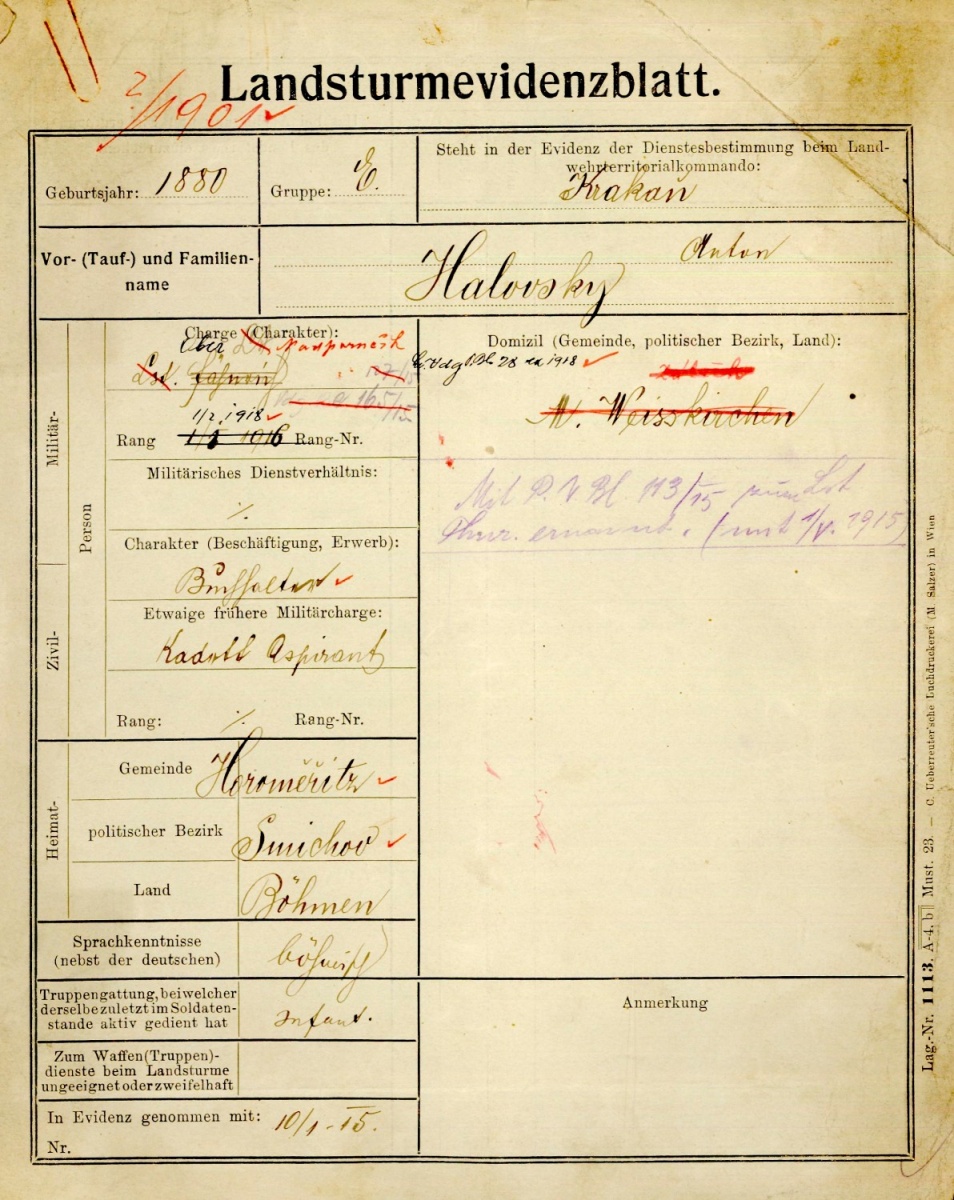 Landsturmevidenzblatt.
2/1901
Geburtsjahr: 1880
Gruppe: E.
Steht in der Evidenz der Dienstesbestimmung beim Land-
wehrterritorialkommando:
Krakau
Vor- (Tauf-) und Familien-
name
Anton
Halovsky
Militär-
Person
Zivil-
Charge (Charakter):
Ober
Lst. Fähnrich
1/2. 1918
Rang 1/5 1916 Rang-Nr.
Militärisches Dienstverhältnis:
./.
Charakter (Beschäftigung, Erwerb):
Buchhalter
Etwaige frühere Militärcharge:
Kadett Aspirant
Rang: ./. Rang-Nr.
Domizil (Gemeinde, politischer Bezirk, Land):
28 ex 1918
M. Weisskirchen
Mit P. V. Bl. 113/15 zum Lst
Fhnr. ernannt. (mit 1/V. 1915)
Heimat-
Gemeinde Horoměřitz
politischer Bezirk Smichov
Land Böhmen
Sprachkenntnisse
(nebst der deutschen)
böhmisch
Truppengattung, bei welcher
derselbe zuletzt im Soldaten-
stande aktiv gedient hat
Infant.
Zum Waffen (Truppen)-
dienste beim Landsturme
ungeeignet oder zweifelhaft
In Evidenz genommen mit: 10/1 - 15.
Nr.
Anmerkung
Lag.-Nr. 1113. A-4, b Must. 23. — C. Ueberreuter'sche Buchdruckerei (M. Salzer) in Wien